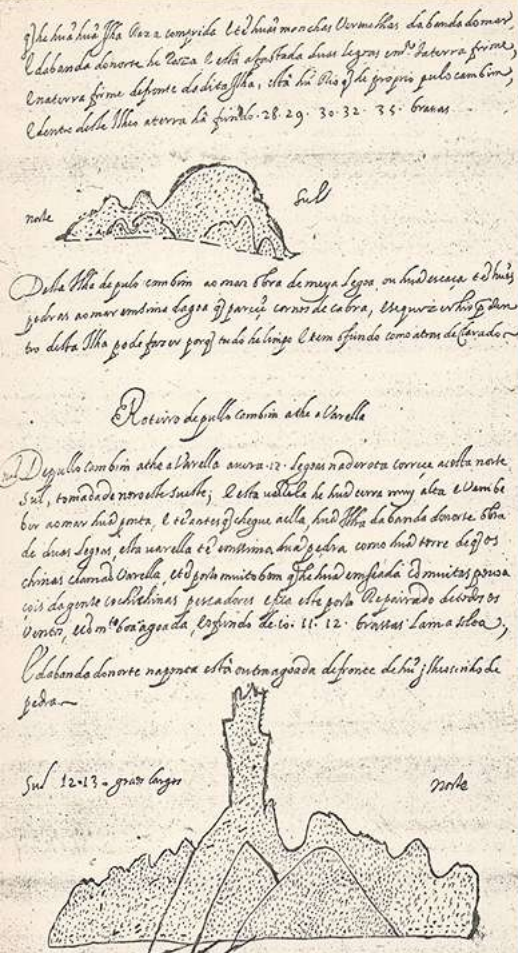 q̃ he huã huã Ilha Raza comprida e tẽ huãs manchas Vermelhas da banda do mar,
e da banda do norte he Raza e está afastada duas legoas em da terra firme,
e na terra firme defronte da dita Ilha, está hũ Rio q̃ de proprio pulo cambim,
e dentre deste Ilheo a terra hã fundo . 28 . 29 . 30 . 32 . 35 . braças
norte
Sul
Desta Ilha de pulo cambim ao mar obra de meya legoa, ou huã escaca tẽ huãs
pedras ao mar em sima dagoa q̃ parecẽ cornos de cabra, e se quizer hir den
tro desta Ilha pode fazer porq̃ tudo he limpo e tem o fundo como atras declarado
Roteiro de pullo Combim athe a Varella
De pullo Combim athe a Varella avera 12 . legoas na derota correce a costa norte
Sul, tomada de noroeste sueste; e esta varella he huã terra muy alta e Vem be
ber ao mar huã ponta, e tẽ antes q̃ chegue a ella, huã Ilha da banda do norte obra
de duas legoas, esta varella tẽ em sima huã pedra como huã torre de q̃ os
chinas chamaõ Varella, e tẽ porto muito bom q̃ he huã emseada cõ muitas povoa
cois de gente cochichinas pescadores este porto Repairado de todos os
Ventos, e com boa agoada, e o fundo de 10 . 11 . 12 . brassas lama solta,
E da banda do norte na ponta está outra agoada defronte de hũ jlheosinho de
pedra
Sul 12 . 13 . graos largos
norte